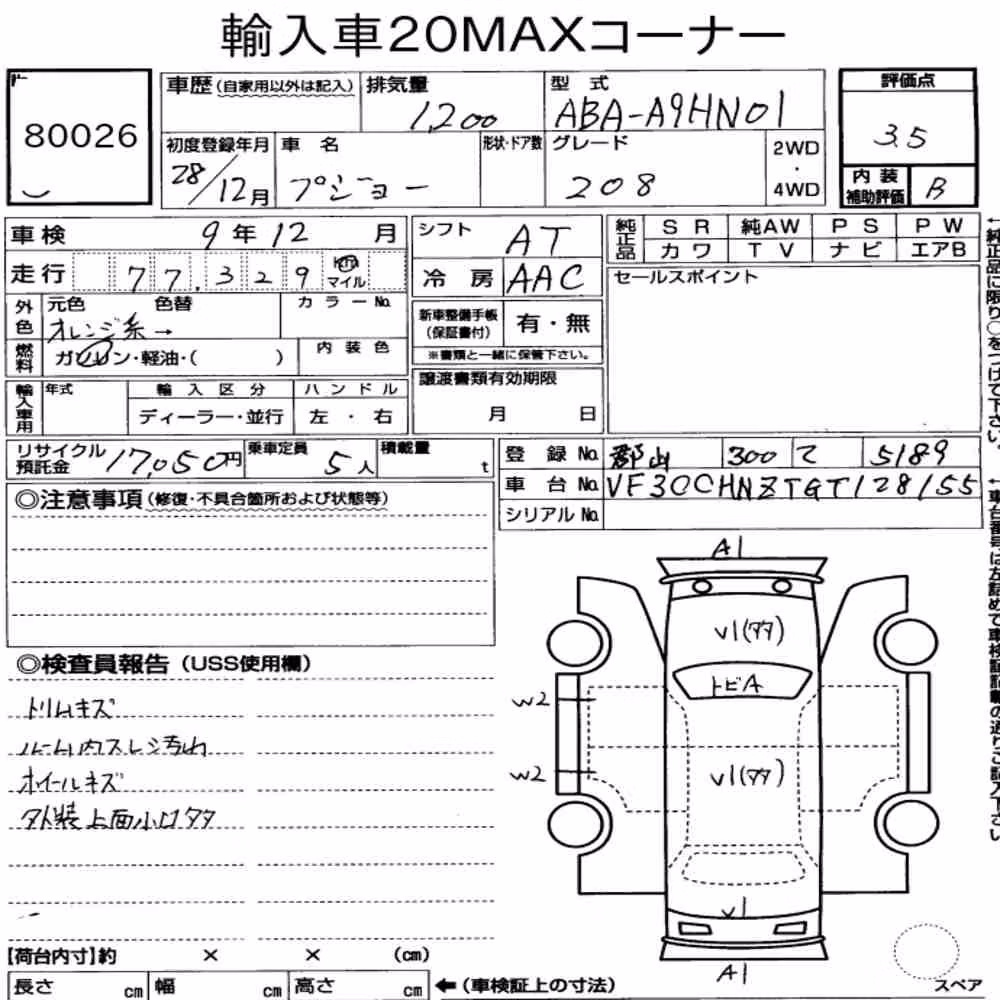 輸入車20MAXコーナー
80026
車歴(自家用以外は記入) 排気量 1,200 型式 ABA-A9HN01 評価点 3.5
初度登録年月 28/12月 車名 プジョー 形状・ドア数 グレード 208 2WD・4WD 内装補助評価 B
車検 9年12月 シフト AT 純正品 SR 純AW PS PW
カワ TV ナビ エアB
走行 77,329 km マイル 冷房 AAC セールスポイント
外色 元色 色替 カラーNo.
オレンジ系→
新車整備手帳(保証書付) 有・無
※書類と一緒に保管下さい。
燃料 ガソリン・軽油・( ) 内装色
譲渡書類有効期限
月 日
輸入車用 年式 輸入区分 ハンドル
ディーラー・並行 左・右
リサイクル預託金 17,050円 乗車定員 5人 積載量 t
登録No. 郡山 300 て 5189
車台No. VF3CCHNZTGT128155
シリアルNo.
◎注意事項(修復・不具合箇所および状態等)
◎検査員報告(USS使用欄)
トリムキズ
ルーム内スレシ汚れ
ホイールキズ
外装上面小ロタタ
A1
V1(タタ)
トビA
W2
W2
V1(タタ)
V1
A1
スペア
【荷台内寸】約 × × (cm)
長さ cm 幅 cm 高さ cm ←(車検証上の寸法)
←純正品に限り○をつけて下さい。